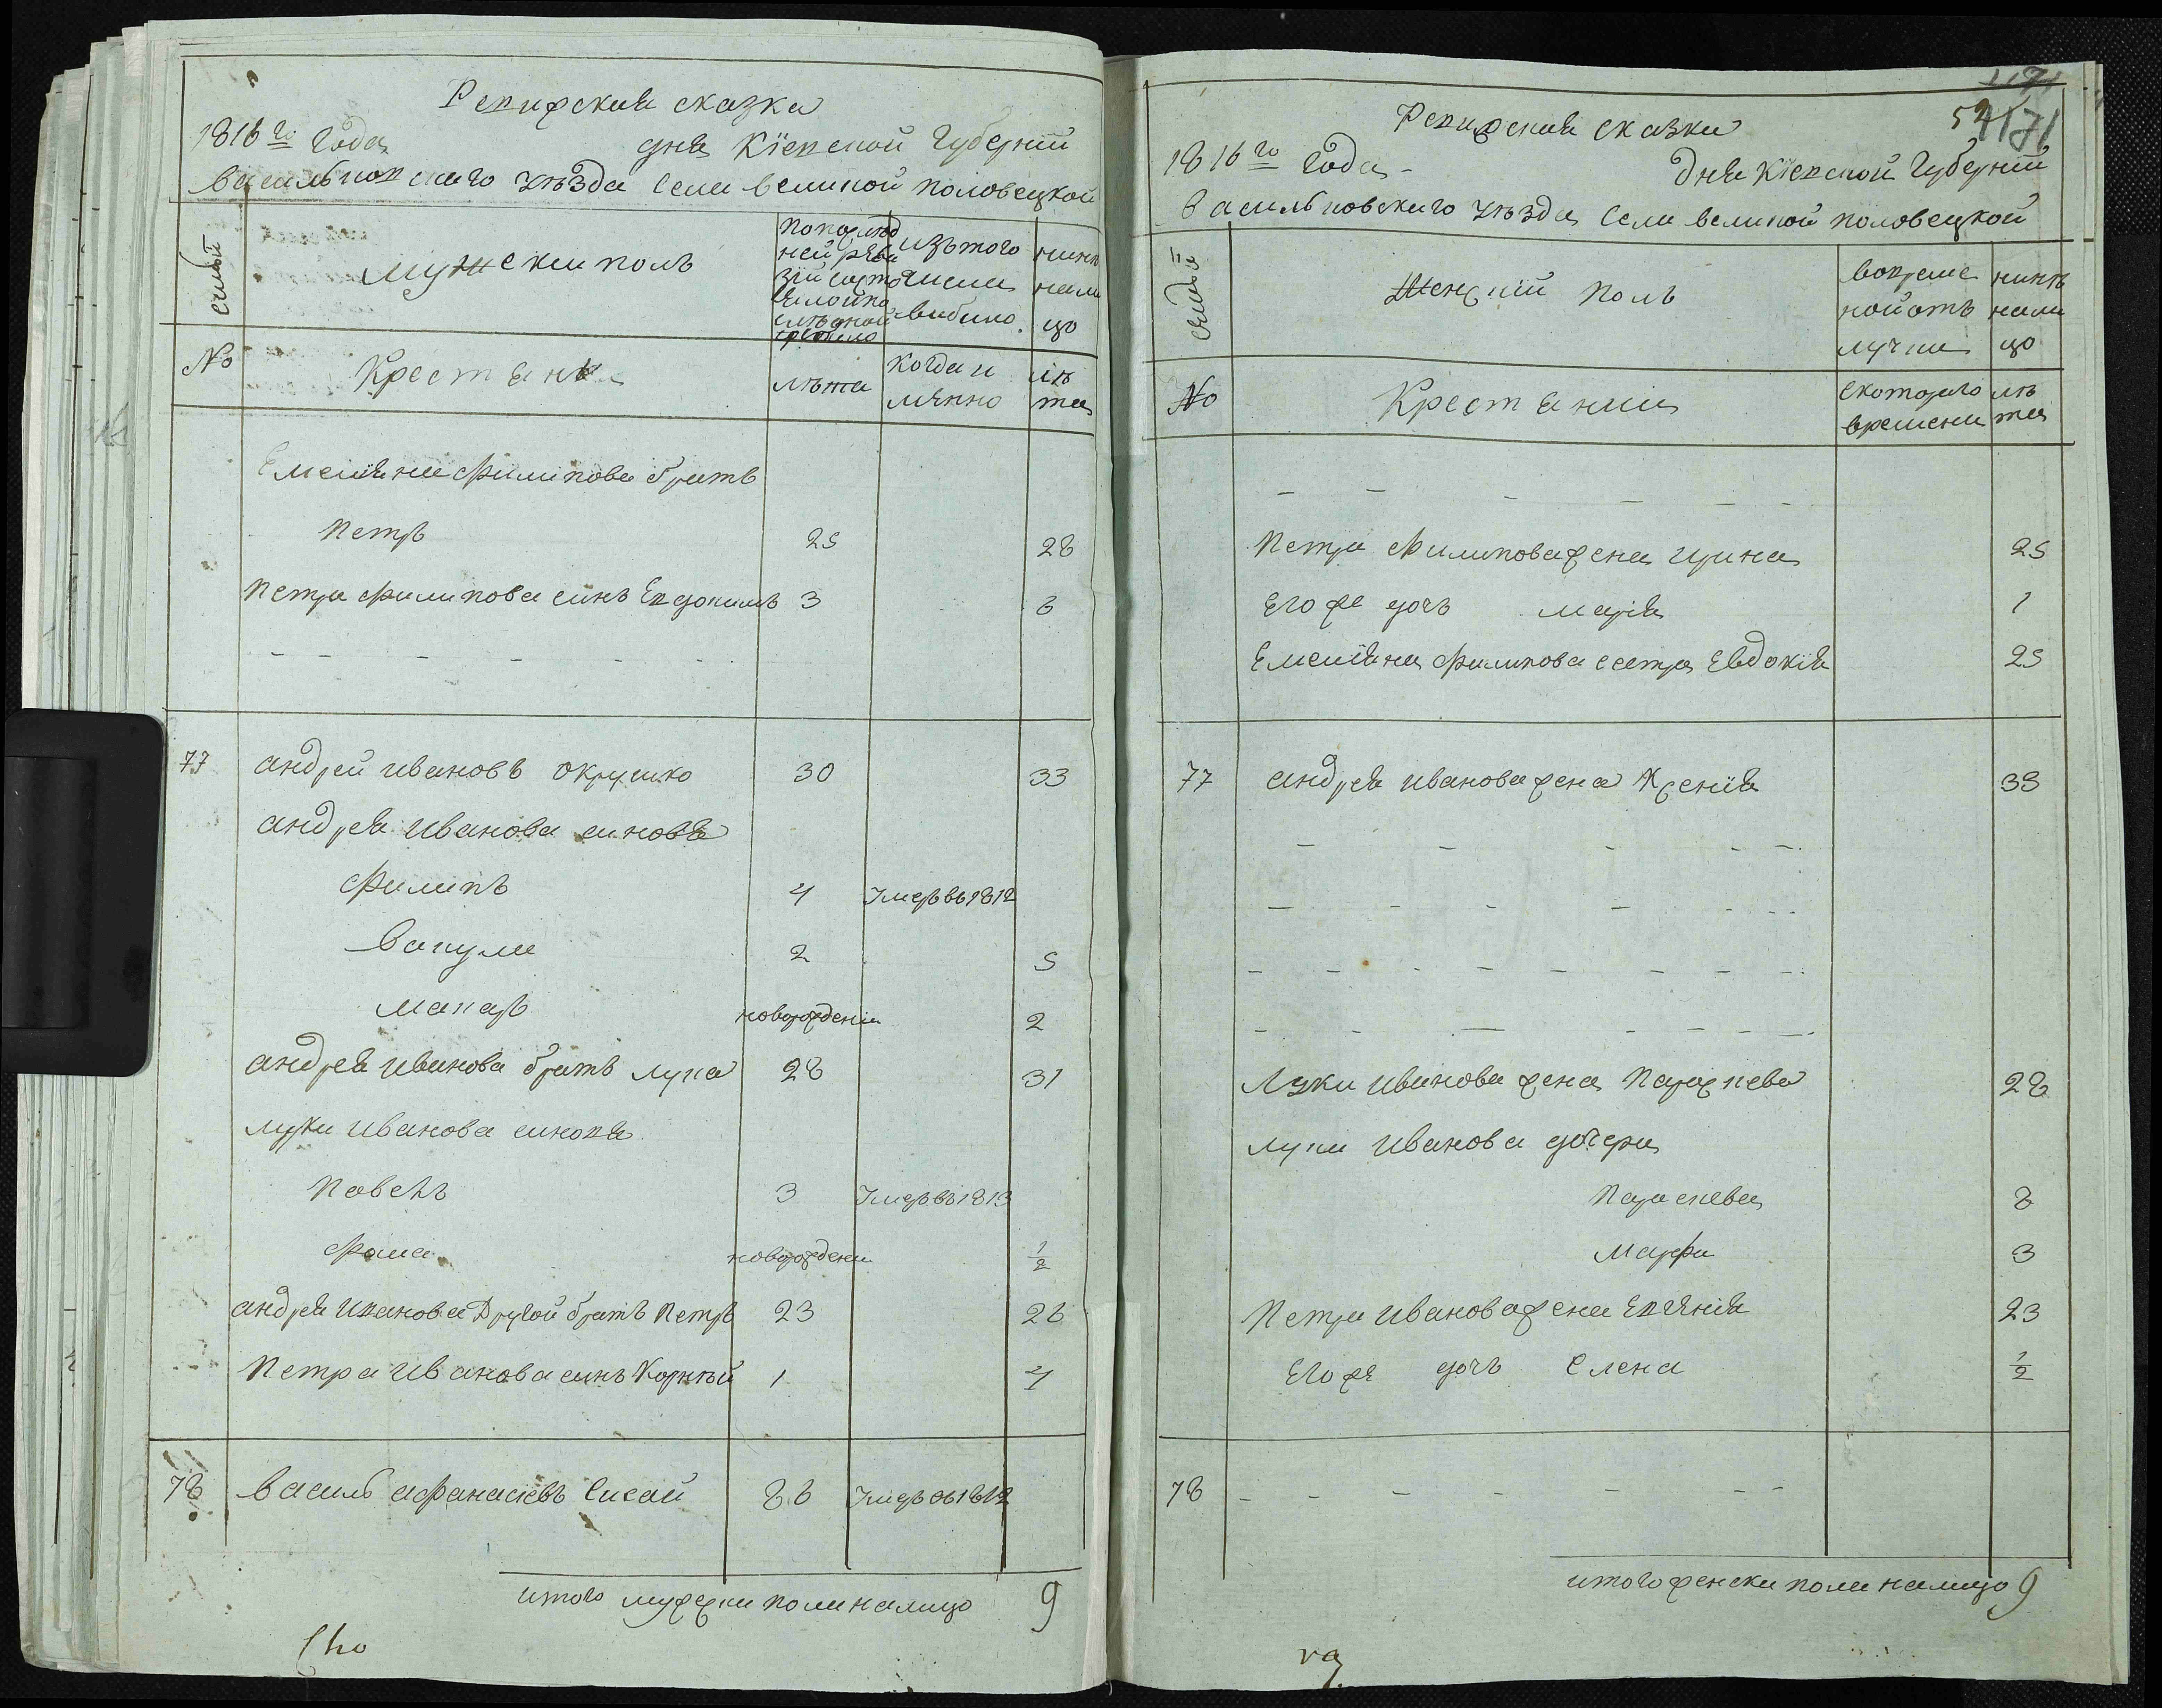 Ревизская сказка
1816го Года дня Кіевской Губерніи
Васильковского уѣзда Села великой половецкой
Семьи
Мужеска полъ
По послед
ней реви
зіи состо
яло и по
слѣ оной
прибыло
изъ того
числа
выбыло
нинѣ
нали
цо
No
Крестьяне
лѣта
Когда и
имянно
лѣ
та
Емелияна Филипова братъ
Петръ 25 28
Петра Филипова синъ Евдокимъ 3 6
77 андрей ивановъ Окрушко 30 33
андрея Иванова синовя
Филипъ 4 Умеръ въ 1812
Вакула 2 5
Макаръ новорожденій 2
андрея Иванова братъ лука 28 31
луки Иванова синовя
Павелъ 3 Умеръ въ 1813
Фома новорожденій 1/2
андрея Иванова Другой братъ Петръ 23 26
Петра Иванова синъ Корнѣй 1 4
78 Василь афанасіевъ Сисай 86 Умеръ въ 1812
итого мужеска пола налицо 9
171
52
1171
Ревизская сказка
1816го Года Дня Кіевской Губерніи
Васильковского уѣзда Села великой половецкой
Семьи
Женскій полъ
вовреме
ной отъ
лучки
нинѣ
нали
цо
No
Крестьянки
Скоторого
времени
лѣ
та
Петра Филипова жена Ирина 25
Его же дочь марія 1
Емелияна Филипова сестра Евдокія 25
77 андрея Иванова жена Ксенія 33
Луки Иванова жена Параскева 28
луки Иванова дочери
Параскева 8
Марфа 3
Петра Иванова жена Евгенія 23
Его же дочъ Елена 1/2
78
итого женска пола налицо 9